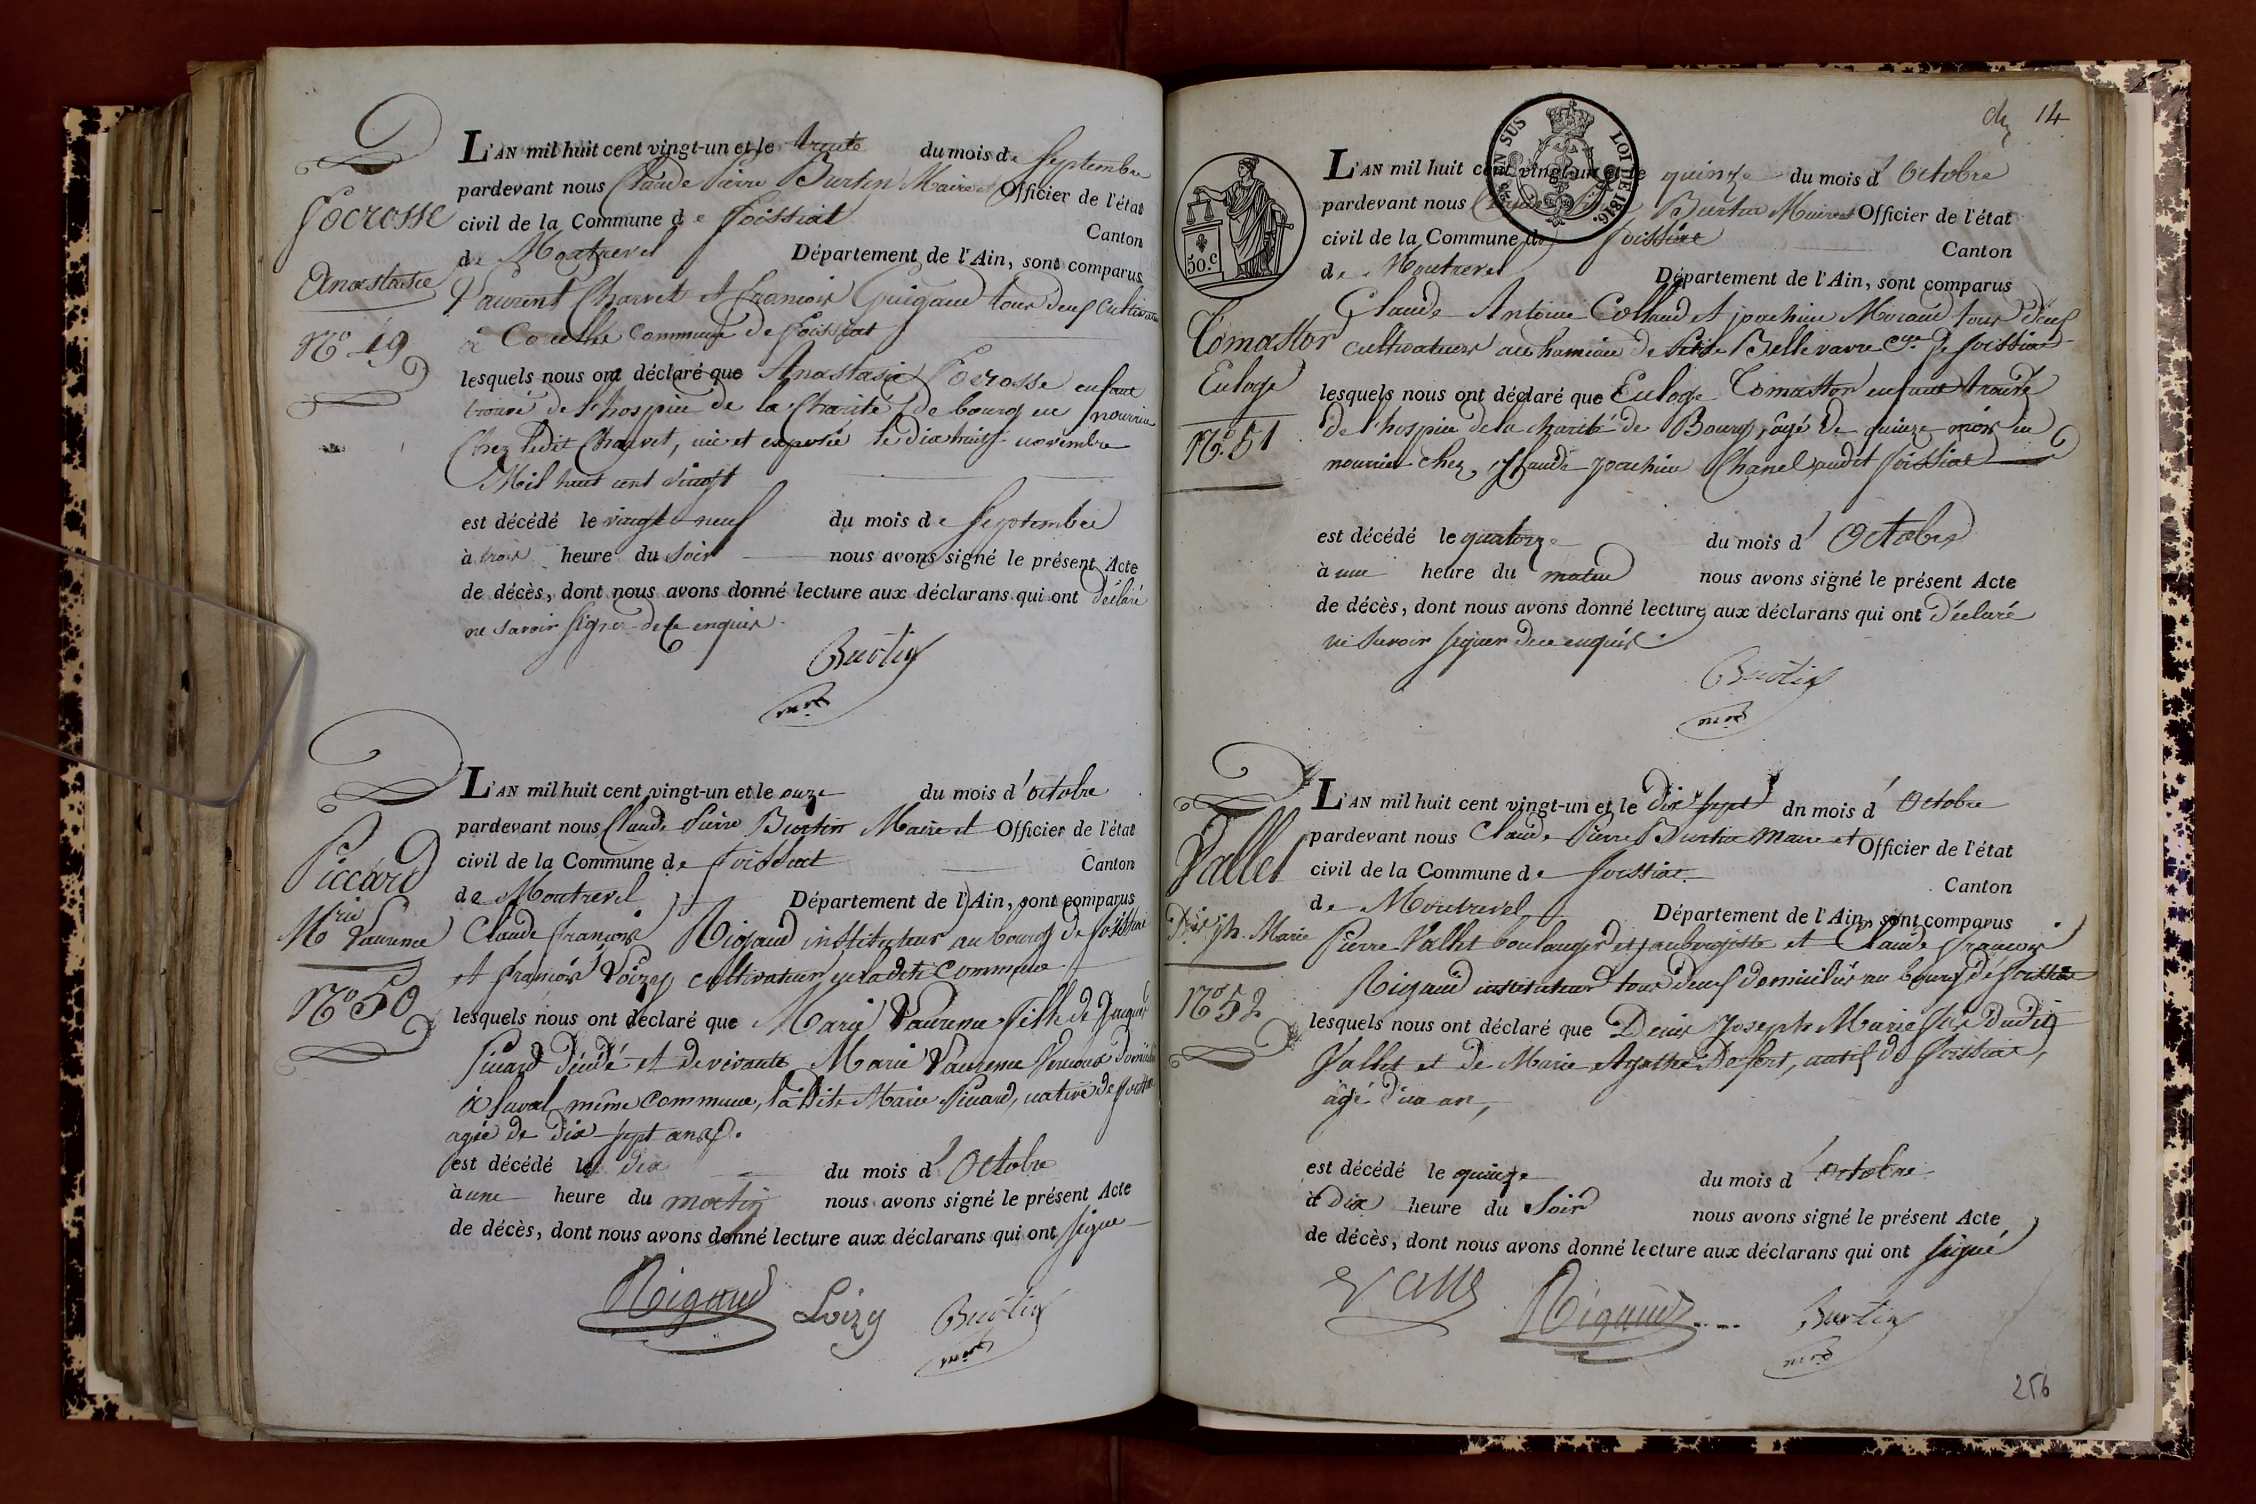 Focrosse
Anastasie
No 49
L'AN mil huit cent vingt-un et le trente du mois de Septembre
pardevant nous Claude Pierre Burtin Maire et Officier de l'état
civil de la Commune de Foissiat Canton
de Montrevel Département de l'Ain, sont comparus
Laurent Charvet et françois Guigaud tous deux cultivateurs
à Couethe Commune de foissiat
lesquels nous ont déclaré que Anastasie Focrosse enfant
trouvé de l'hospice de la Charité de bourg en nourrice
Chez ledit Charvet, née et exposée le dix huit novembre
Mil huit cent vingt
est décédé le vingt neuf du mois de Septembre
à trois heure du soir nous avons signé le présent Acte
de décès, dont nous avons donné lecture aux déclarans qui ont déclaré
ne savoir signer de ce enquis.
Burtin
mre
Piccard
Mrie Laurence
No 50
L'AN mil huit cent vingt-un et le onze du mois d'octobre
pardevant nous Claude Pierre Burtin Maire et Officier de l'état
civil de la Commune de foissiat Canton
de Montrevel Département de l'Ain, sont comparus
Claude françois Rigaud instituteur au bourg de foissiat
et françois Loizy cultivateur de la dite commune
lesquels nous ont déclaré que Marie Laurence fille de Jacques
Picard décédé et de vivante Marie Laurence domiciliée
à Laval même commune, la dite Marie Picard, native de foissiat
agée de dix sept ans.
est décédé le dix du mois d'Octobre
à une heure du matin nous avons signé le présent Acte
de décès, dont nous avons donné lecture aux déclarans qui ont signé
Rigaud Loizy Burtin
mre
14
EN SUS
LOI DE 1816.
50.c
Comastor
Euloge
No 51
L'AN mil huit cent vingt-un et le quinze du mois d'Octobre
pardevant nous Claude Pierre Burtin Maire et Officier de l'état
civil de la Commune de foissiat Canton
de Montrevel Département de l'Ain, sont comparus
Claude Antoine Colland et joachim Moraud tous deux
cultivateurs au hameau de Bellevavre cne de foissiat
lesquels nous ont déclaré que Euloge Comastor enfant trouvé
de l'hospice de la charité de Bourg, âgé de quinze mois en
nourrice chez, Claude Joachim Chanel, audit foissiat
est décédé le quatorze du mois d'Octobre
à une heure du matin nous avons signé le présent Acte
de décès, dont nous avons donné lecture aux déclarans qui ont Déclaré
ne savoir signer de ce enquis.
Burtin
mre
Vallet
Dis Jph. Marie
No 52
L'AN mil huit cent vingt-un et le dix sept dn mois d'Octobre
pardevant nous Claude Pierre Burtin Maire et Officier de l'état
civil de la Commune de foissiat Canton
de Montrevel Département de l'Ain, sont comparus
Pierre Vallet boulanger et aubergiste et Claude françois
Rigaud instituteur tous deux domiciliés au bourg de foissiat
lesquels nous ont déclaré que Denis Joseph Marie fils dudit
Vallet et de Marie Agathe Defert, natif de foissiat,
âgé d'un an,
est décédé le quinze du mois d'octobre
à dix heure du soir nous avons signé le présent Acte
de décès, dont nous avons donné lecture aux déclarans qui ont signé
Vallet Rigaud Burtin
mre
256